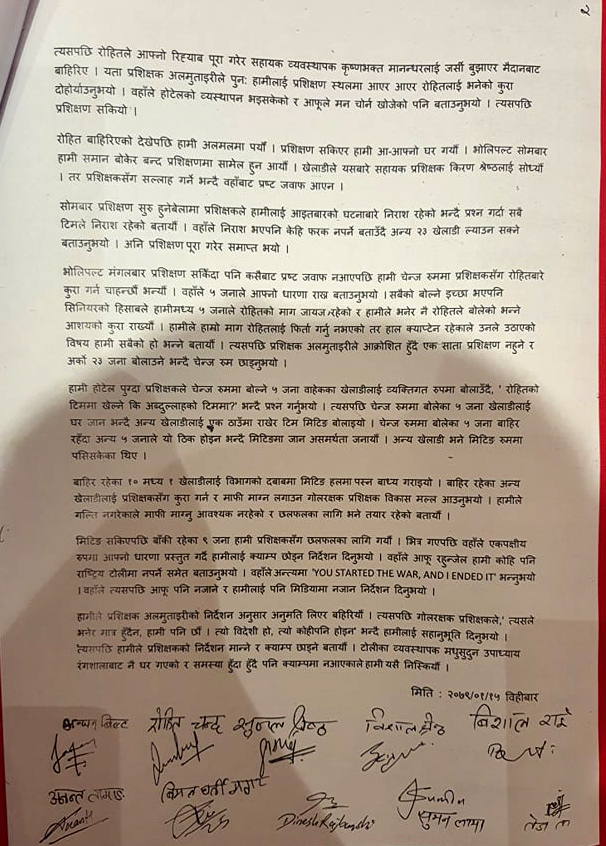 २
त्यसपछि रोहितले आफ्नो रिह्याब पूरा गरेर सहायक व्यवस्थापक कृष्णभक्त मानन्धरलाई जर्सी बुझाएर मैदानबाट
बाहिरिए । यता प्रशिक्षक अलमुताइरीले पुन: हामीलाई प्रशिक्षण स्थलमा आएर आएर रोहितलाई भनेको कुरा
दोहोर्याउनुभयो । वहाँले होटेलको व्यवस्थापन भइसकेको र आफूले मन चोर्न खोजेको पनि बताउनुभयो । त्यसपछि
प्रशिक्षण सकियो ।
रोहित बाहिरिएको देखेपछि हामी अलमलमा पर्यौं । प्रशिक्षण सकिएर हामी आ-आफ्नो घर गयौं । भोलिपल्ट सोमबार
हामी समान बोकेर बन्द प्रशिक्षणमा सामेल हुन आयौं । खेलाडीले यसबारे सहायक प्रशिक्षक किरण श्रेष्ठलाई सोध्यौं
। तर प्रशिक्षकसँग सल्लाह गर्ने भन्दै वहाँबाट प्रष्ट जवाफ आएन ।
सोमबार प्रशिक्षण सुरु हुनेबेलामा प्रशिक्षकले हामीलाई आइतबारको घटनाबारे निराश रहेको भन्दै प्रश्न गर्दा सबै
टिमले निराश रहेको बतायौं । वहाँले निराश भएपनि केहि फरक नपर्ने बताउँदै अन्य २३ खेलाडी ल्याउन सक्ने
बताउनुभयो । अनि प्रशिक्षण पूरा गरेर समाप्त भयो ।
भोलिपल्ट मंगलबार प्रशिक्षण सकिंदा पनि कसैबाट प्रष्ट जवाफ नआएपछि हामी चेन्ज रुममा प्रशिक्षकसँग रोहितबारे
कुरा गर्न चाहन्छौं भन्यौं । वहाँले ५ जनाले आफ्नो धारणा राख्न बताउनुभयो । सबैको बोल्ने इच्छा भएपनि
सिनियरको हिसाबले हामीमध्ये ५ जनाले रोहितको माग जायज रहेको र हामीले भनेर नै रोहितले बोलेको भन्ने
आशयको कुरा राख्यौं । हामीले हाम्रो माग रोहितलाई फिर्ता गर्नु नभएको तर हाल क्याप्टेन रहेकाले उनले उठाएको
विषय हामी सबैको हो भन्ने बतायौं । त्यसपछि प्रशिक्षक अलमुताइरीले आक्रोशित हुँदै एक साता प्रशिक्षण नहुने र
अर्को २३ जना बोलाउने भन्दै चेन्ज रुम छाड्नुभयो ।
हामी होटेल पुग्दा प्रशिक्षकले चेन्ज रुममा बोल्ने ५ जना वाहेकका खेलाडीलाई व्यक्तिगत रुपमा बोलाउँदै, ' रोहितको
टिममा खेल्ने कि अब्दुल्लाहको टिममा?' भन्दै प्रश्न गर्नुभयो । त्यसपछि चेन्ज रुममा बोलेका ५ जना खेलाडीलाई
घर जान भन्दै अन्य खेलाडीलाई एक ठाउँमा राखेर टिम मिटिङ बोलाइयो । चेन्ज रुममा बोलेका ५ जना बाहिर
रहँदा अन्य ५ जनाले यो ठिक होइन भन्दै मिटिङमा जान असमर्थता जनायौं । अन्य खेलाडी भने मिटिङ रुममा
पसिसकेका थिए ।
बाहिर रहेका १० मध्य १ खेलाडीलाई विभागको दबाबमा मिटिङ हलमा पस्न बाध्य गराइयो । बाहिर रहेका अन्य
खेलाडीलाई प्रशिक्षकसँग कुरा गर्न र माफी माग्न लगाउन गोलरक्षक प्रशिक्षक विकास मल्ल आउनुभयो । हामीले
गल्ति नगरेकाले माफी माग्नु आवश्यक नरहेको र छलफलका लागि भने तयार रहेको बतायौं ।
मिटिङ सकिएपछि बाँकी रहेका ९ जना हामी प्रशिक्षकसँग छलफलका लागि गयौं । भित्र गएपछि वहाँले एकपक्षीय
रुपमा आफ्नो धारणा प्रस्तुत गर्दै हामीलाई क्याम्प छोड्न निर्देशन दिनुभयो । वहाँले आफू रहुन्जेल हामी कोहि पनि
राष्ट्रिय टोलीमा नपर्ने समेत बताउनुभयो । वहाँले अन्त्यमा 'YOU STARTED THE WAR, AND I ENDED IT' भन्नुभयो
। वहाँले त्यसपछि आफू पनि नजाने र हामीलाई पनि मिडियामा नजान निर्देशन दिनुभयो ।
हामीले प्रशिक्षक अलमुताइरीको निर्देशन अनुसार अनुमति लिएर बहिरियौं । त्यसपछि गोलरक्षक प्रशिक्षकले,' त्यसले
भनेर मात्र हुँदैन, हामी पनि छौं । त्यो विदेशी हो, त्यो कोहीपनि होइन' भन्दै हामीलाई सहानुभूति दिनुभयो ।
त्यसपछि हामीले प्रशिक्षकको निर्देशन मान्ने र क्याम्प छाड्ने बतायौं । टोलीका व्यवस्थापक मधुसुदुन उपाध्याय
रंगशालाबाट नै घर गएको र समस्या हुँदा हुँदै पनि क्याम्पमा नआएकाले हामी यसै निस्कियौं ।
मिति : २०७९/०१/१५ विहीबार
बिष्ट रोहित चन्द सुजल श्रेष्ठ विशाल श्रेष्ठ बिशाल राई
अनन्त तामाङ बिमल घर्ती मगर
Ananta Dinesh Rajbanshi सुमन लामा तेज